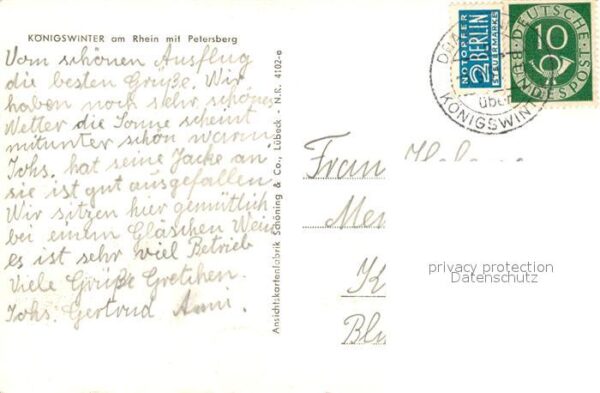 KÖNIGSWINTER am Rhein mit Petersberg
Vom schönen Ausflug
die besten Grüße. Wir
haben noch sehr schönes
Wetter die Sonne scheint
mitunter schön warm.
Johs. hat seine Jacke an,
sie ist gut ausgefallen.
Wir sitzen hier gemütlich
bei einem Gläschen Wein
es ist sehr viel Betrieb
Viele Grüße Gretchen.
Johs. Gertrud Anni.
Ansichtskartenfabrik Schöning & Co., Lübeck - N.R. 4102-a
NOTOPFER
2 BERLIN
STEUERMARKE
DEUTSCHE
BUNDESPOST
10
über
KÖNIGSWIN
Frau
Me
K
Bl
privacy protection
Datenschutz